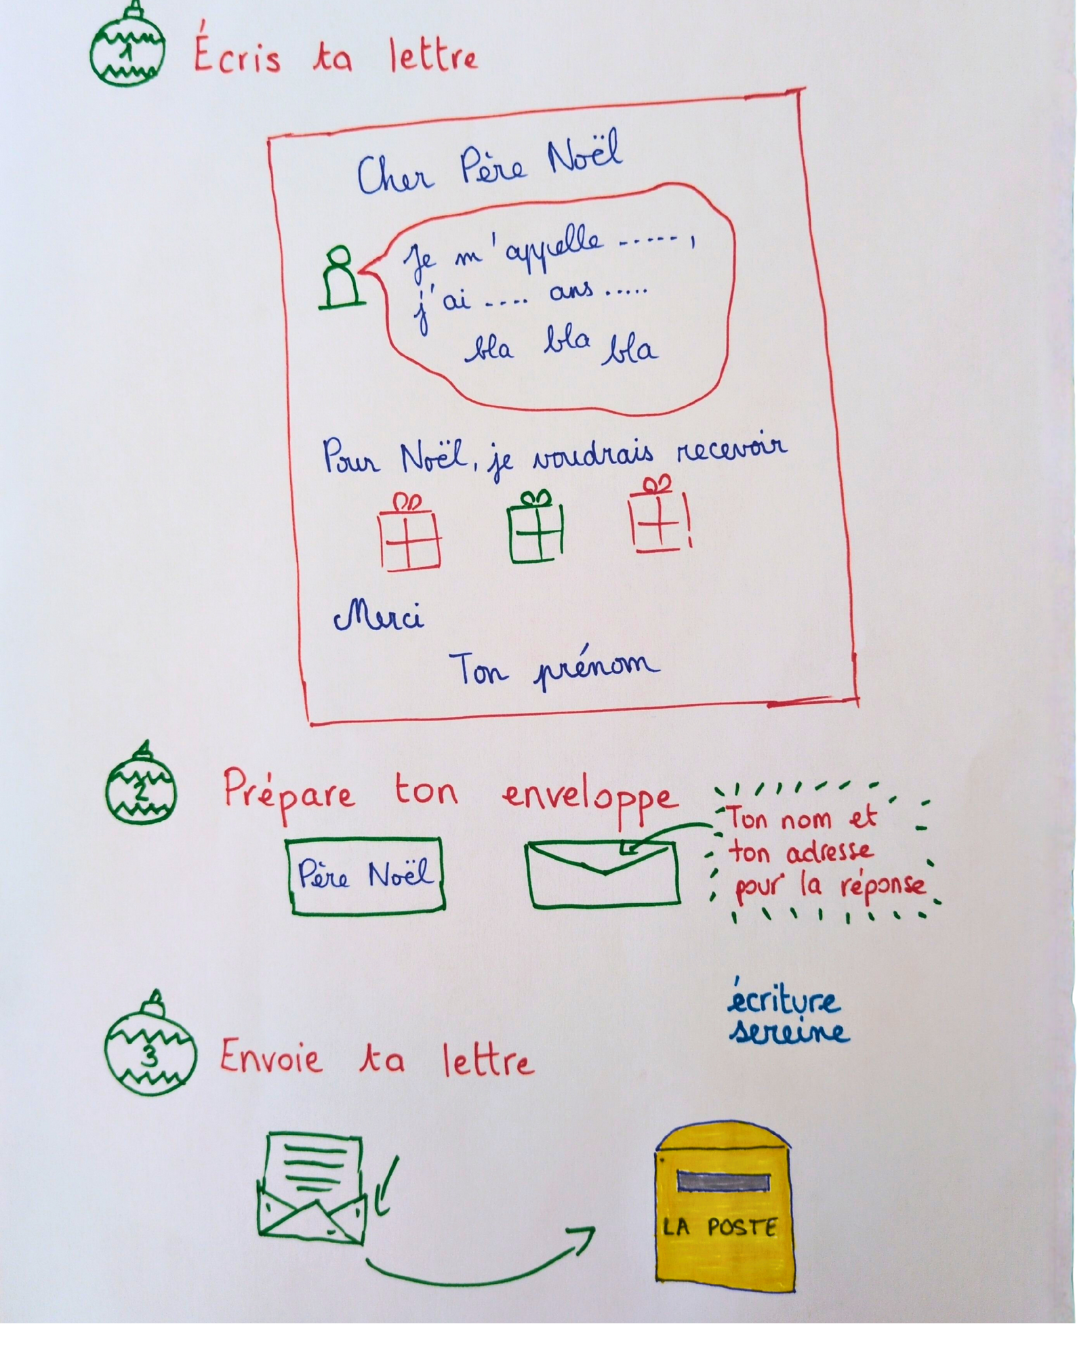 1 Écris ta lettre
Cher Père Noël
Je m'appelle ......,
j'ai .... ans .....
bla bla bla
Pour Noël, je voudrais recevoir
Merci
Ton prénom
2 Prépare ton enveloppe
Père Noël
Ton nom et
ton adresse
pour la réponse
écriture
sereine
3 Envoie ta lettre
LA POSTE